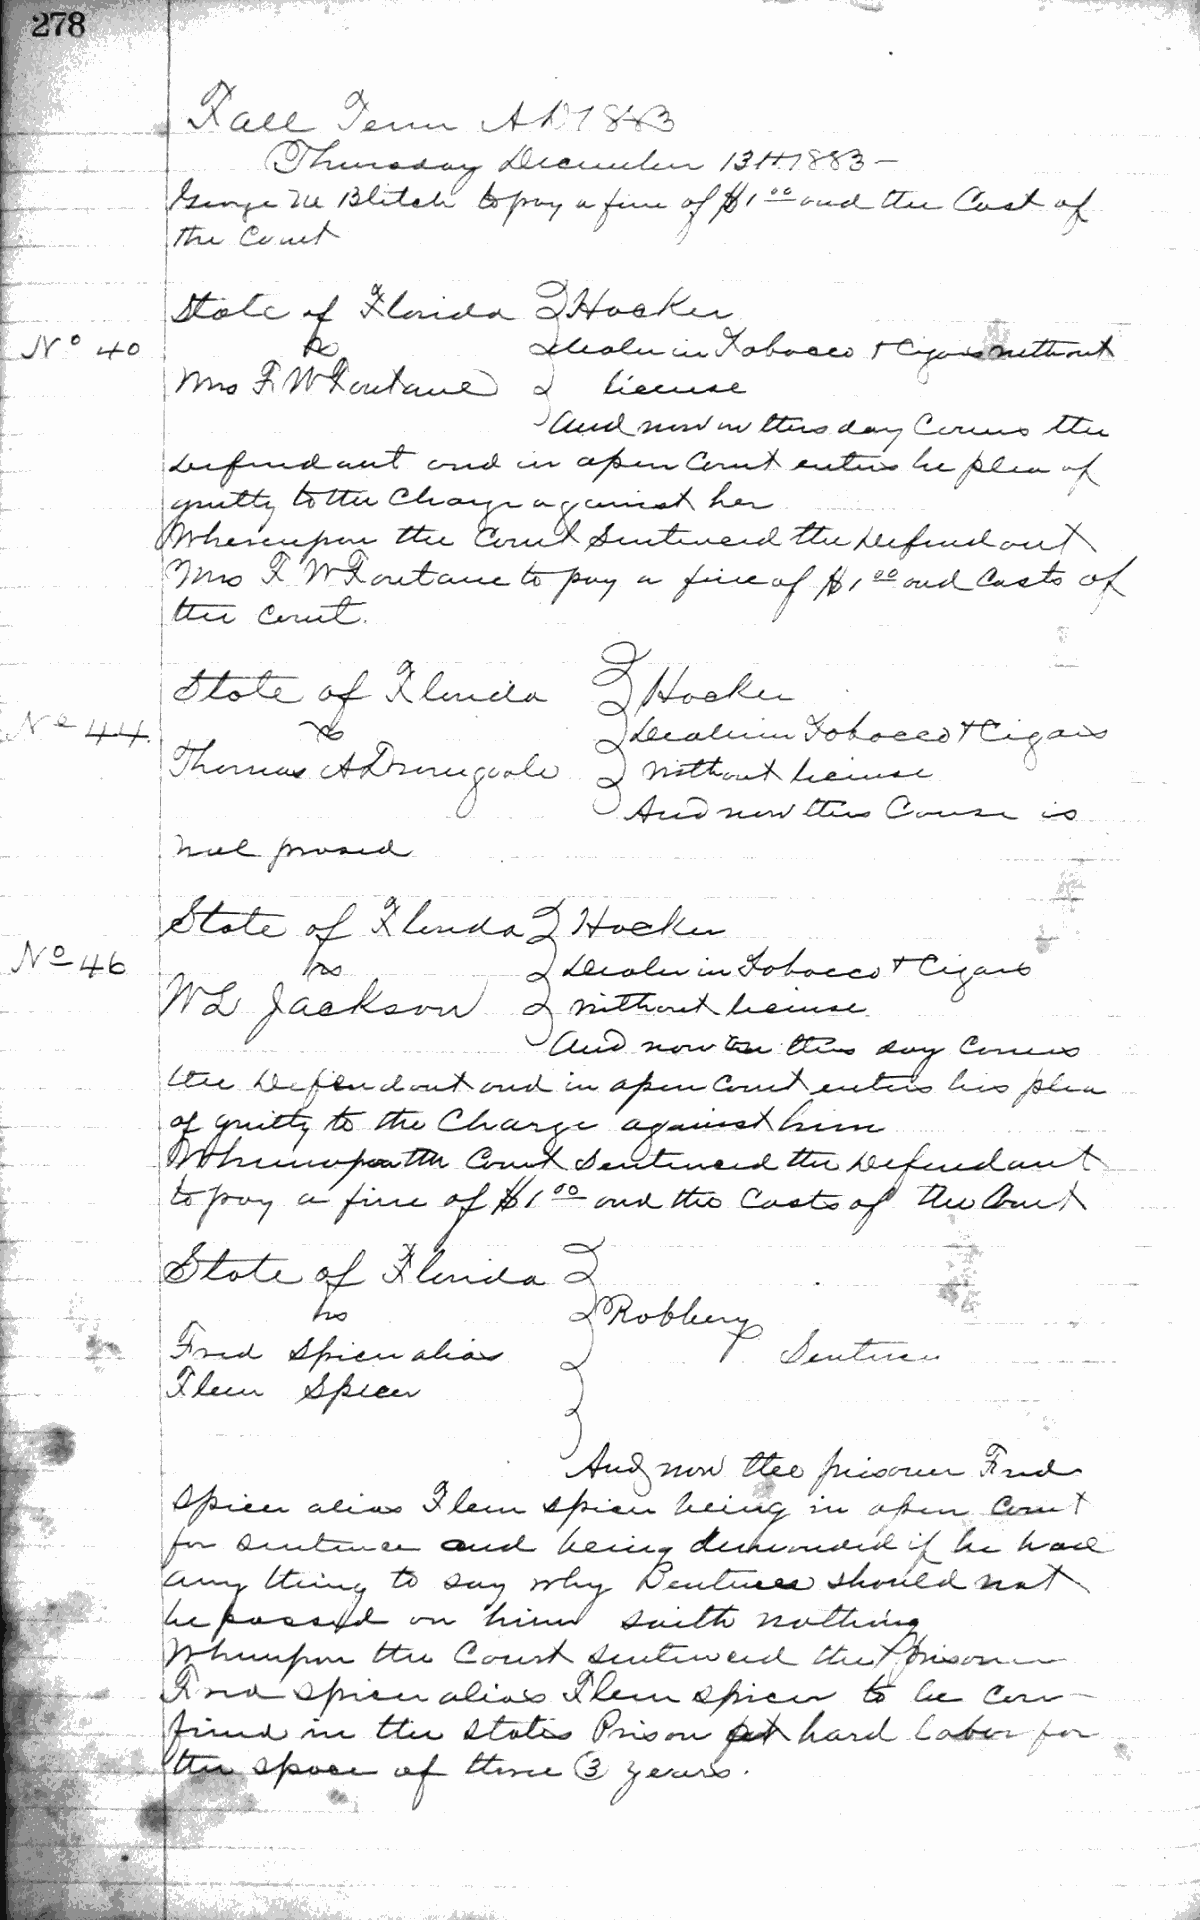 278
Fall Term AD 1883
Thursday December 13th 1883 -
George M Blitch to pay a fine of $1 00 and the Cost of
the Court
State of Florida Hocker
No 40 vs Dealer in Tobacco + Cigars without
Mrs F W Fontane license
And now on this day Comes the
Defendant and in open Court enters he plea of
guilty to the Charge against her
Whereupon the Court Sentenced the Defendant
Mrs F W Fontane to pay a fine of $1 00 and Costs of
the Court.
State of Florida Hocker
No 44. vs Dealer in Tobacco + Cigars
Thomas A Dromgoole without license
And now this Cause is
nol prosed
State of Florida Hocker
No 46 vs Dealer in Tobacco + Cigars
W L Jackson without license
And now on this day Comes
the Defendant and in open Court enters his plea
of guilty to the Charge against him
Whereupon the Court Sentenced the Defendant
to pay a fine of $1 00 and the Costs of the Court
State of Florida
vs Robbery
Fred Spicer alias Sentence
Flem Spicer
And now the prisoner Fred
Spicer alias Flem Spicer being in open Court
for sentence and being demanded if he had
any thing to say why Sentence should not
be passed on him saith nothing
Whereupon the Court sentenced the prisoner
Fred Spicer alias Flem Spicer to be con-
fined in the States Prison at hard labor for
the space of three (3 years.